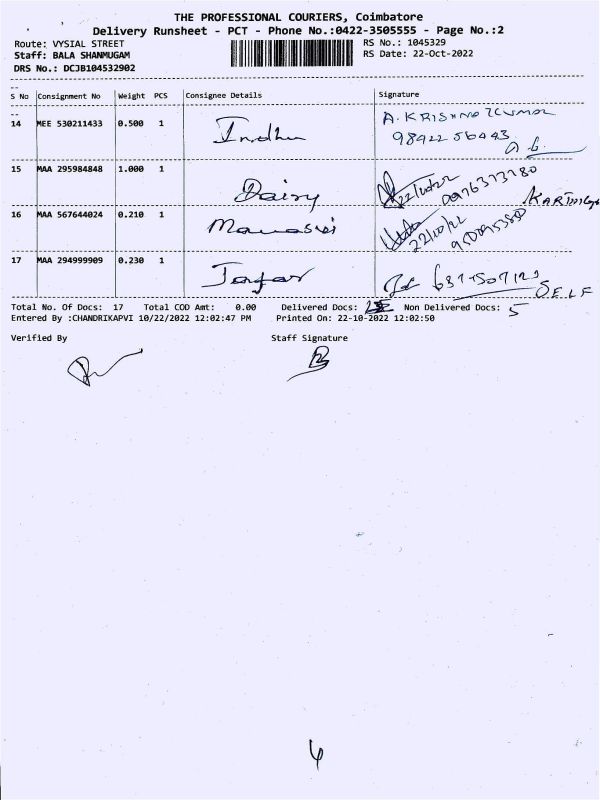 THE PROFESSIONAL COURIERS, Coimbatore
Delivery Runsheet - PCT - Phone No.:0422-3505555 - Page No.:2
Route: VYSIAL STREET RS No.: 1045329
Staff: BALA SHANMUGAM RS Date: 22-Oct-2022
DRS No.: DCJB104532902
S No Consignment No Weight PCS Consignee Details Signature
14 MEE 530211433 0.500 1 Indhu A. KRISHNA KUMAR
15 MAA 295984848 1.000 1 Daisy 22/10/22
16 MAA 567644024 0.210 1 Manasvi 22/10/22
17 MAA 294999909 0.230 1 Jafar SELF
Total No. Of Docs: 17 Total COD Amt: 0.00 Delivered Docs: Non Delivered Docs: 5
Entered By :CHANDRIKAPVI 10/22/2022 12:02:47 PM Printed On: 22-10-2022 12:02:50
Verified By Staff Signature